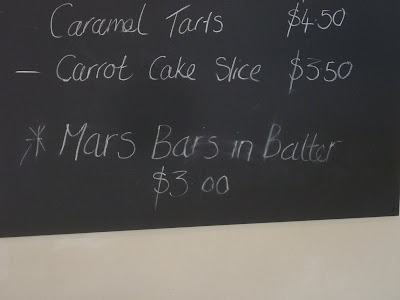 Caramel Tarts $4.50
— Carrot Cake Slice $3.50
* Mars Bars in Batter
$3.00